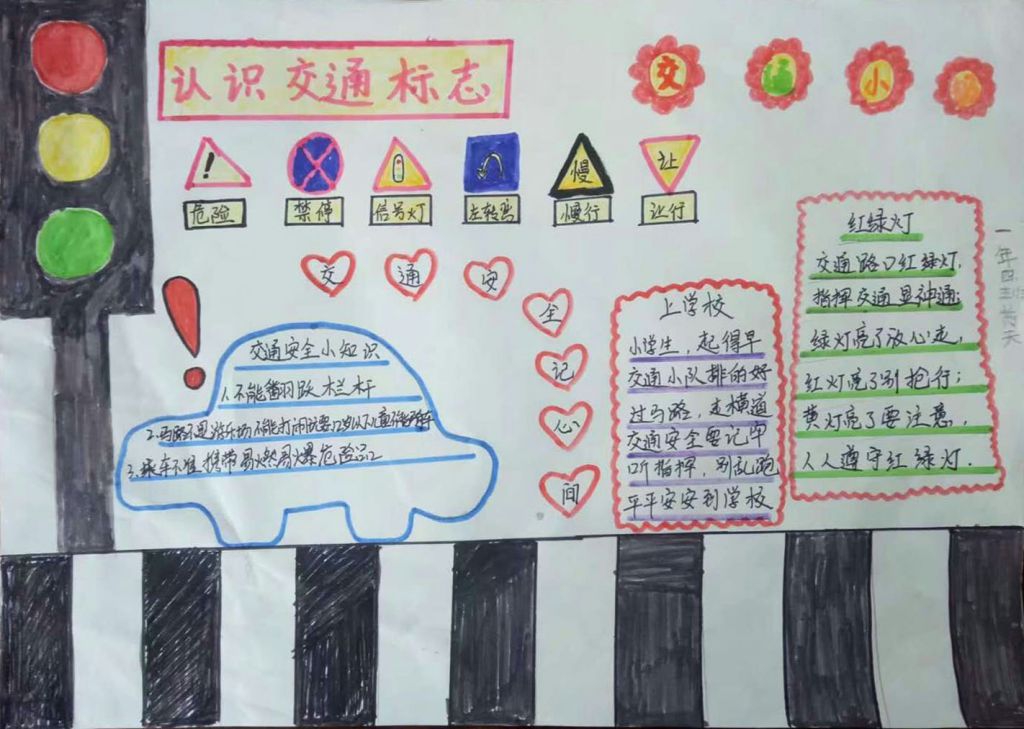 认识交通标志
交
通
小
!
危险
禁停
信号灯
左转弯
慢
慢行
让
让行
交
通
安
全
记
心
间
交通安全小知识
1.不能翻跃栏杆
2.马路不是游乐场不能打闹玩耍12岁以下儿童不能骑车
3.乘车不准携带易燃易爆危险品
上学校
小学生，起得早
交通小队排的好
过马路，走横道
交通安全要记牢
听指挥，别乱跑
平平安安到学校
红绿灯
交通路口红绿灯，
指挥交通显神通；
绿灯亮了放心走，
红灯亮了别抢行；
黄灯亮了要注意，
人人遵守红绿灯.
一年四班